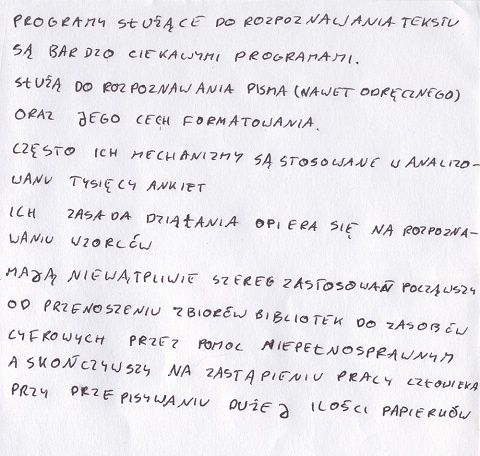 PROGRAMY SŁUŻĄCE DO ROZPOZNAWANIA TEKSTU
SĄ BARDZO CIEKAWYMI PROGRAMAMI.
SŁUŻĄ DO ROZPOZNAWANIA PISMA (NAWET ODRĘCZNEGO)
ORAZ JEGO CECH FORMATOWANIA.
CZĘSTO ICH MECHANIZMY SĄ STOSOWANE W ANALIZO-
WANU TYSIĘCY ANKIET
ICH ZASADA DZIĄŁANIA OPIERA SIĘ NA ROZPOZNA-
WANIU WZORCÓW
MAJĄ NIEWĄTPLIWIE SZEREG ZASTOSOWAŃ POCZĄWSZY
OD PRZENOSZENIU ZBIORÓW BIBLIOTEK DO ZASOBÓW
CYFROWYCH PRZEZ POMOC NIEPEŁNOSPRAWNYM
A SKOŃCZYWSZY NA ZASTĄPIENIU PRACY CZŁOWIEKA
PRZY PRZEPISYWANIU DUŻEJ ILOŚCI PAPIERKÓW